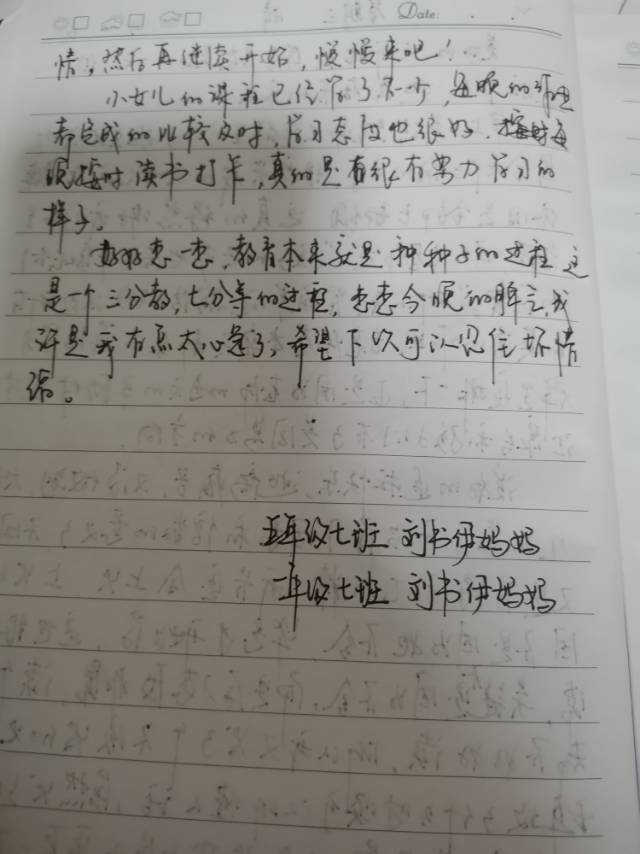 Date:
情，然后再继续开始，慢慢来吧！
小女儿的课程已经学了不少，每晚的作业
都完成的比较及时，学习态度也很好，按时每
晚按时读书打卡，真的是有很有努力学习的
样子。
好好想一想，教育本来就是种种子的过程，这
是一个三分教，七分等的过程，想想今晚的脾气，或
许是我有点太心急了，希望下次可以忍住坏情
绪。
五年级七班 刘书伊妈妈
一年级七班 刘书伊妈妈